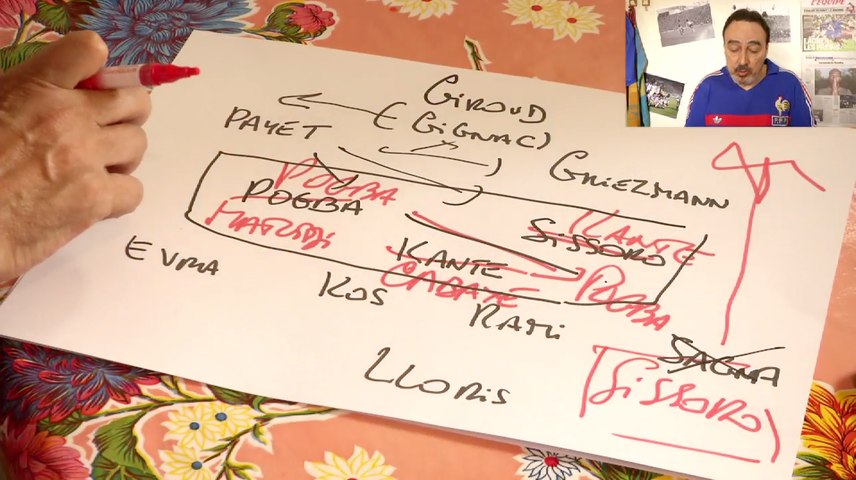 GIROUD
(GIGNAC)
PAYET
GRIEZMANN
POGBA
POGBA
MATUIDI
KANTE
SISSOKO
KANTE
CABAYE
POGBA
EVRA
KOS
RAMI
SAGNA
SISSOKO
LLORIS
L'EQUIPE